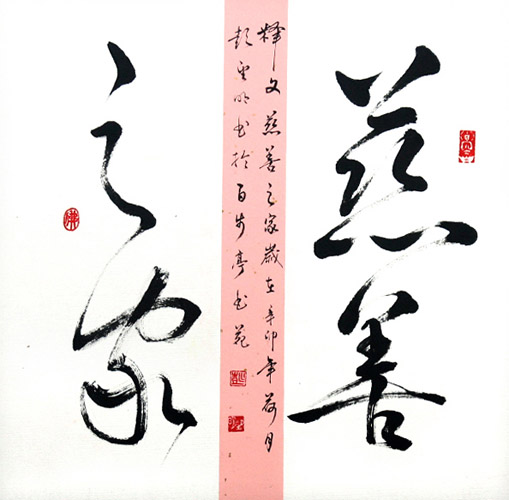 慈善
之家
释文慈善之家歲在辛卯年荷月
彭云明书於百步亭书苑